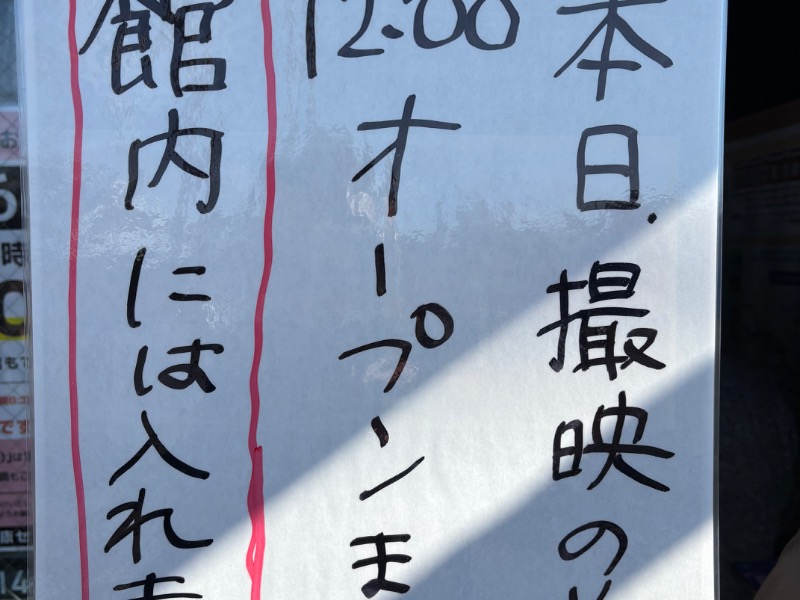 本日.撮映の
12:00オープンま
館内には入れま